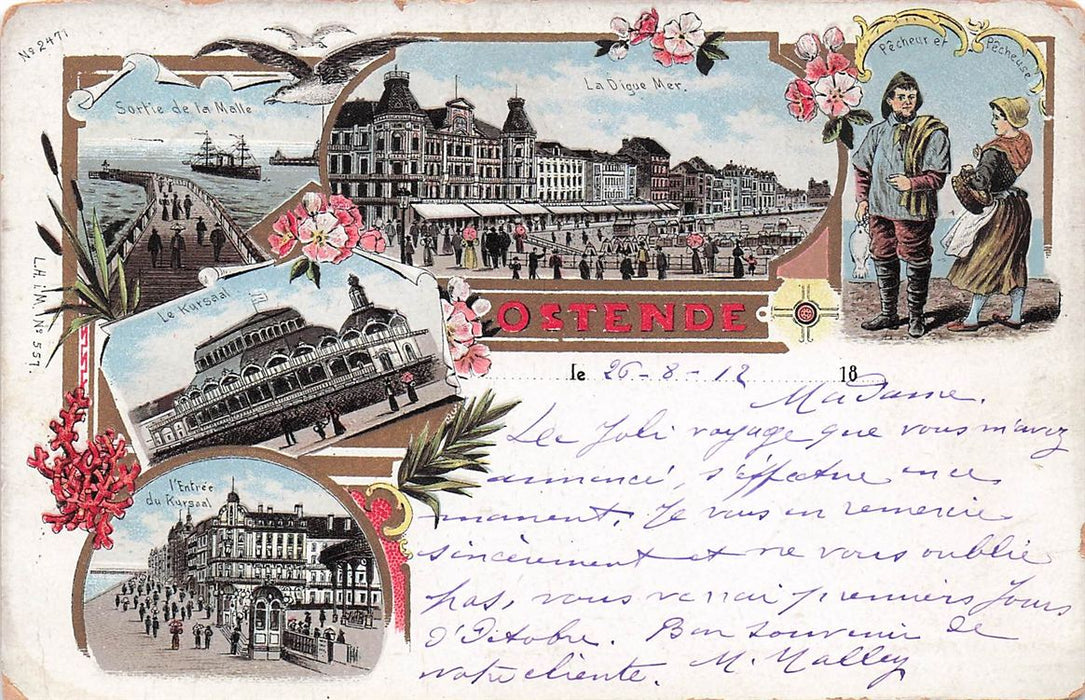 No 2471
Sortie de la Malle
La Digue Mer.
Pêcheur et Pêcheuse
L.H.i.M. No 557.
Le Kursaal
OSTENDE
le 26-8-12 18
Madame.
Le Joli voyage que vous m'avez
annoncé, s'éffectue en ce
moment. Je vous en remercie
sincèrement et ne vous oublie
pas, vous verrai premiers Jours
d'Octobre. Bon souvenir de
votre cliente. M. Malley
l'Entrée
du Kursaal